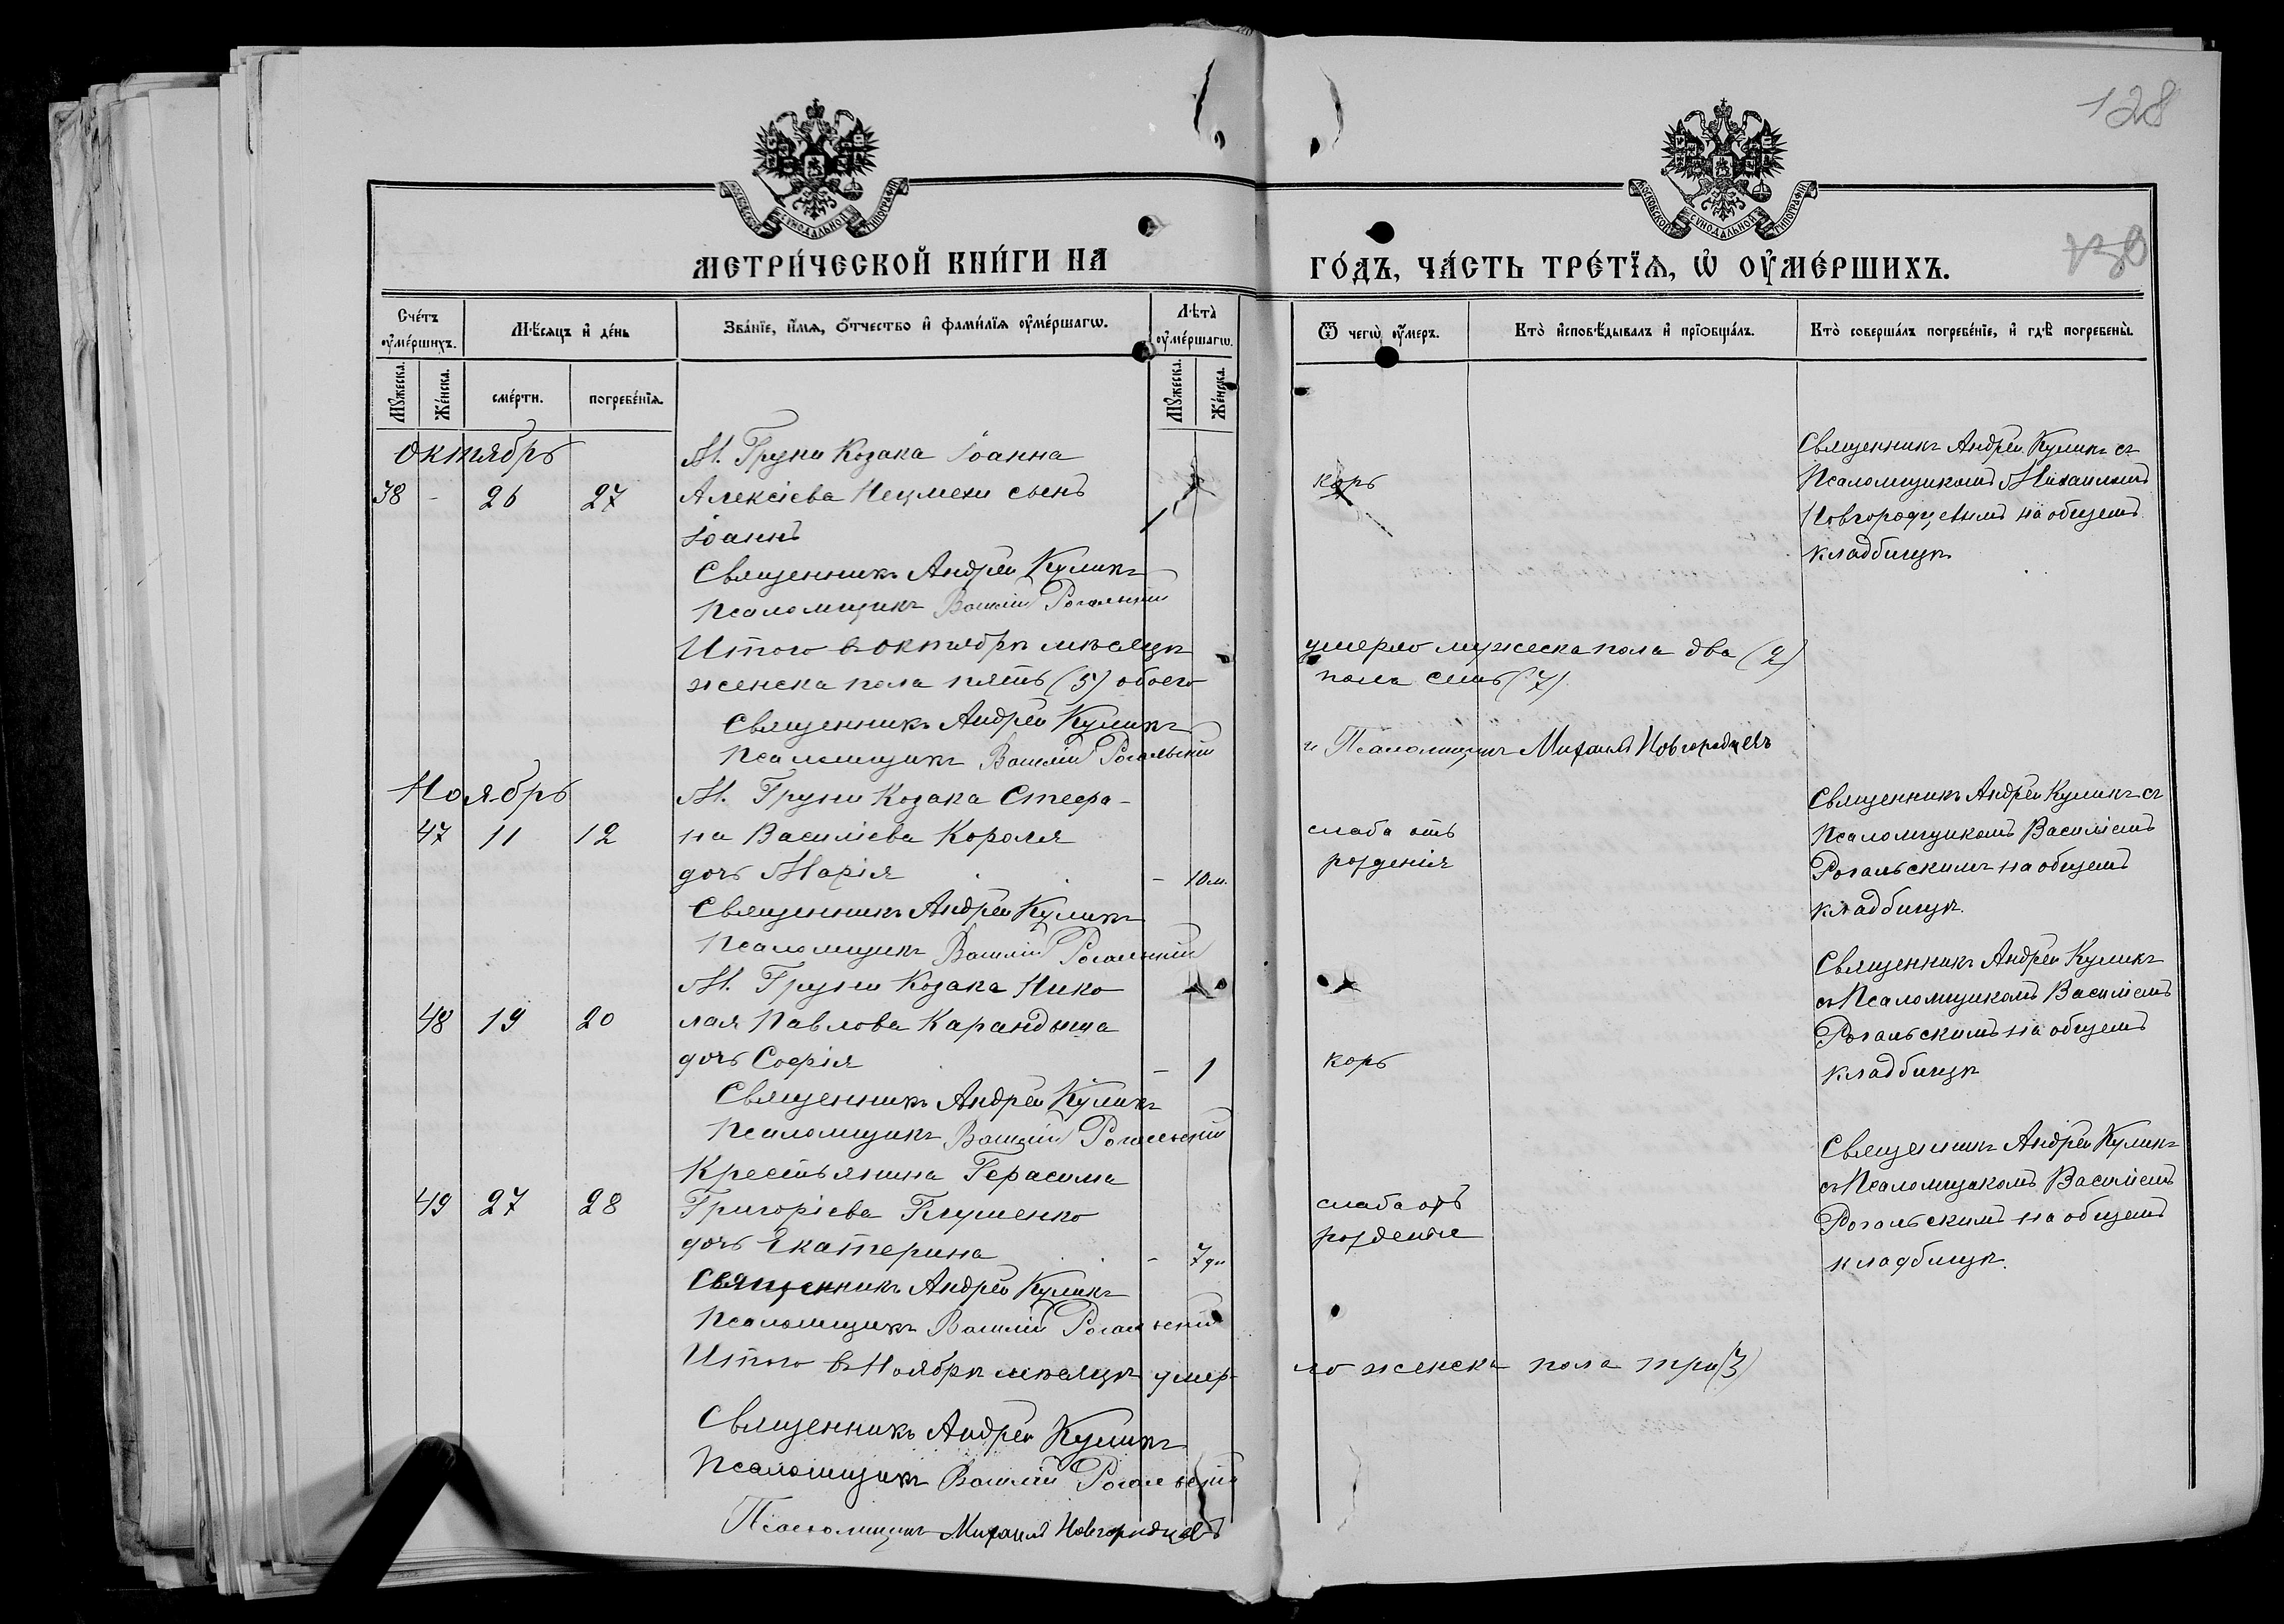 128
130
МОСКОВСКОЙ СѴНОДАЛЬНОЙ ТИПОГРАФІИ
МОСКОВСКОЙ СѴНОДАЛЬНОЙ ТИПОГРАФІИ
МЕТРИ́ЧЕСКОЙ КНИ́ГИ НА ГО́ДЪ, ЧА́СТЬ ТРЕ́ТІѦ, Ѡ҆ ОУ҆МЕ́РШИХЪ.
Сче́тъ оу҆ме́ршихъ. Мѣ́сяцъ и҆ де́нь Зва́нїе, и҆́мѧ, ѻ҆́тчество и҆ фами́лїѧ оу҆ме́ршагѡ. Лѣ́та оу҆ме́ршагѡ. Ѿ чегѡ̀ оу҆́меръ. Кто̀ и҆сповѣ́дывалъ и҆ прїѡбща́лъ. Кто̀ соверша́лъ погребе́нїе, и҆ гдѣ̀ погребены̀.
Мꙋ́жеска. Же́нска. сме́рти. погребе́нїѧ. Мꙋ́жеска. Же́нска.
Октябрь
38 - 26 27
М. Груни Козака Іоанна
Алексіева сынъ
Іоаннъ
корь
Священникъ Андрей Куликъ съ
Псаломщикомъ Михаиломъ
Новгородцевымъ на общемъ
кладбищѣ
Священникъ Андрей Куликъ
Псаломщикъ Василій Рогальскій
Итого въ Октябрѣ мѣсяцѣ умерло мужеска пола два (2)
женска пола пять (5) обоего пола семь (7)
Священникъ Андрей Куликъ
Псаломщикъ Василій Рогальскій и Псаломщикъ Михаилъ Новгородцевъ
Ноябрь
47 11 12
М. Груни Козака Стефа-
на Василіева Короля
дочь Марія - 10 м.
слаба отъ
рожденія
Священникъ Андрей Куликъ съ
Псаломщикомъ Василіемъ
Рогальскимъ на общемъ
кладбищѣ.
Священникъ Андрей Куликъ
Псаломщикъ Василій Рогальскій
48 19 20
М. Груни Козака Нико
лая Павлова Карандыша
дочь Софія - 1
корь
Священникъ Андрей Куликъ
съ Псаломщикомъ Василіемъ
Рогальскимъ на общемъ
кладбищѣ
Священникъ Андрей Куликъ
Псаломщикъ Василій Рогальскій
49 27 28
Крестьянина Герасима
Григоріева Глушенко
дочь Екатерина - 7 дн
слаба отъ
рожденіе
Священникъ Андрей Куликъ
съ Псаломщикомъ Василіемъ
Рогальскимъ на общемъ
кладбищѣ.
Священникъ Андрей Куликъ
Псаломщикъ Василій Рогальскій
Итого въ Ноябрѣ мѣсяцѣ умер-ло женска пола три (3)
Священникъ Андрей Куликъ
Псаломщикъ Василій Рогальскій
Псаломщикъ Михаилъ Новгородцевъ